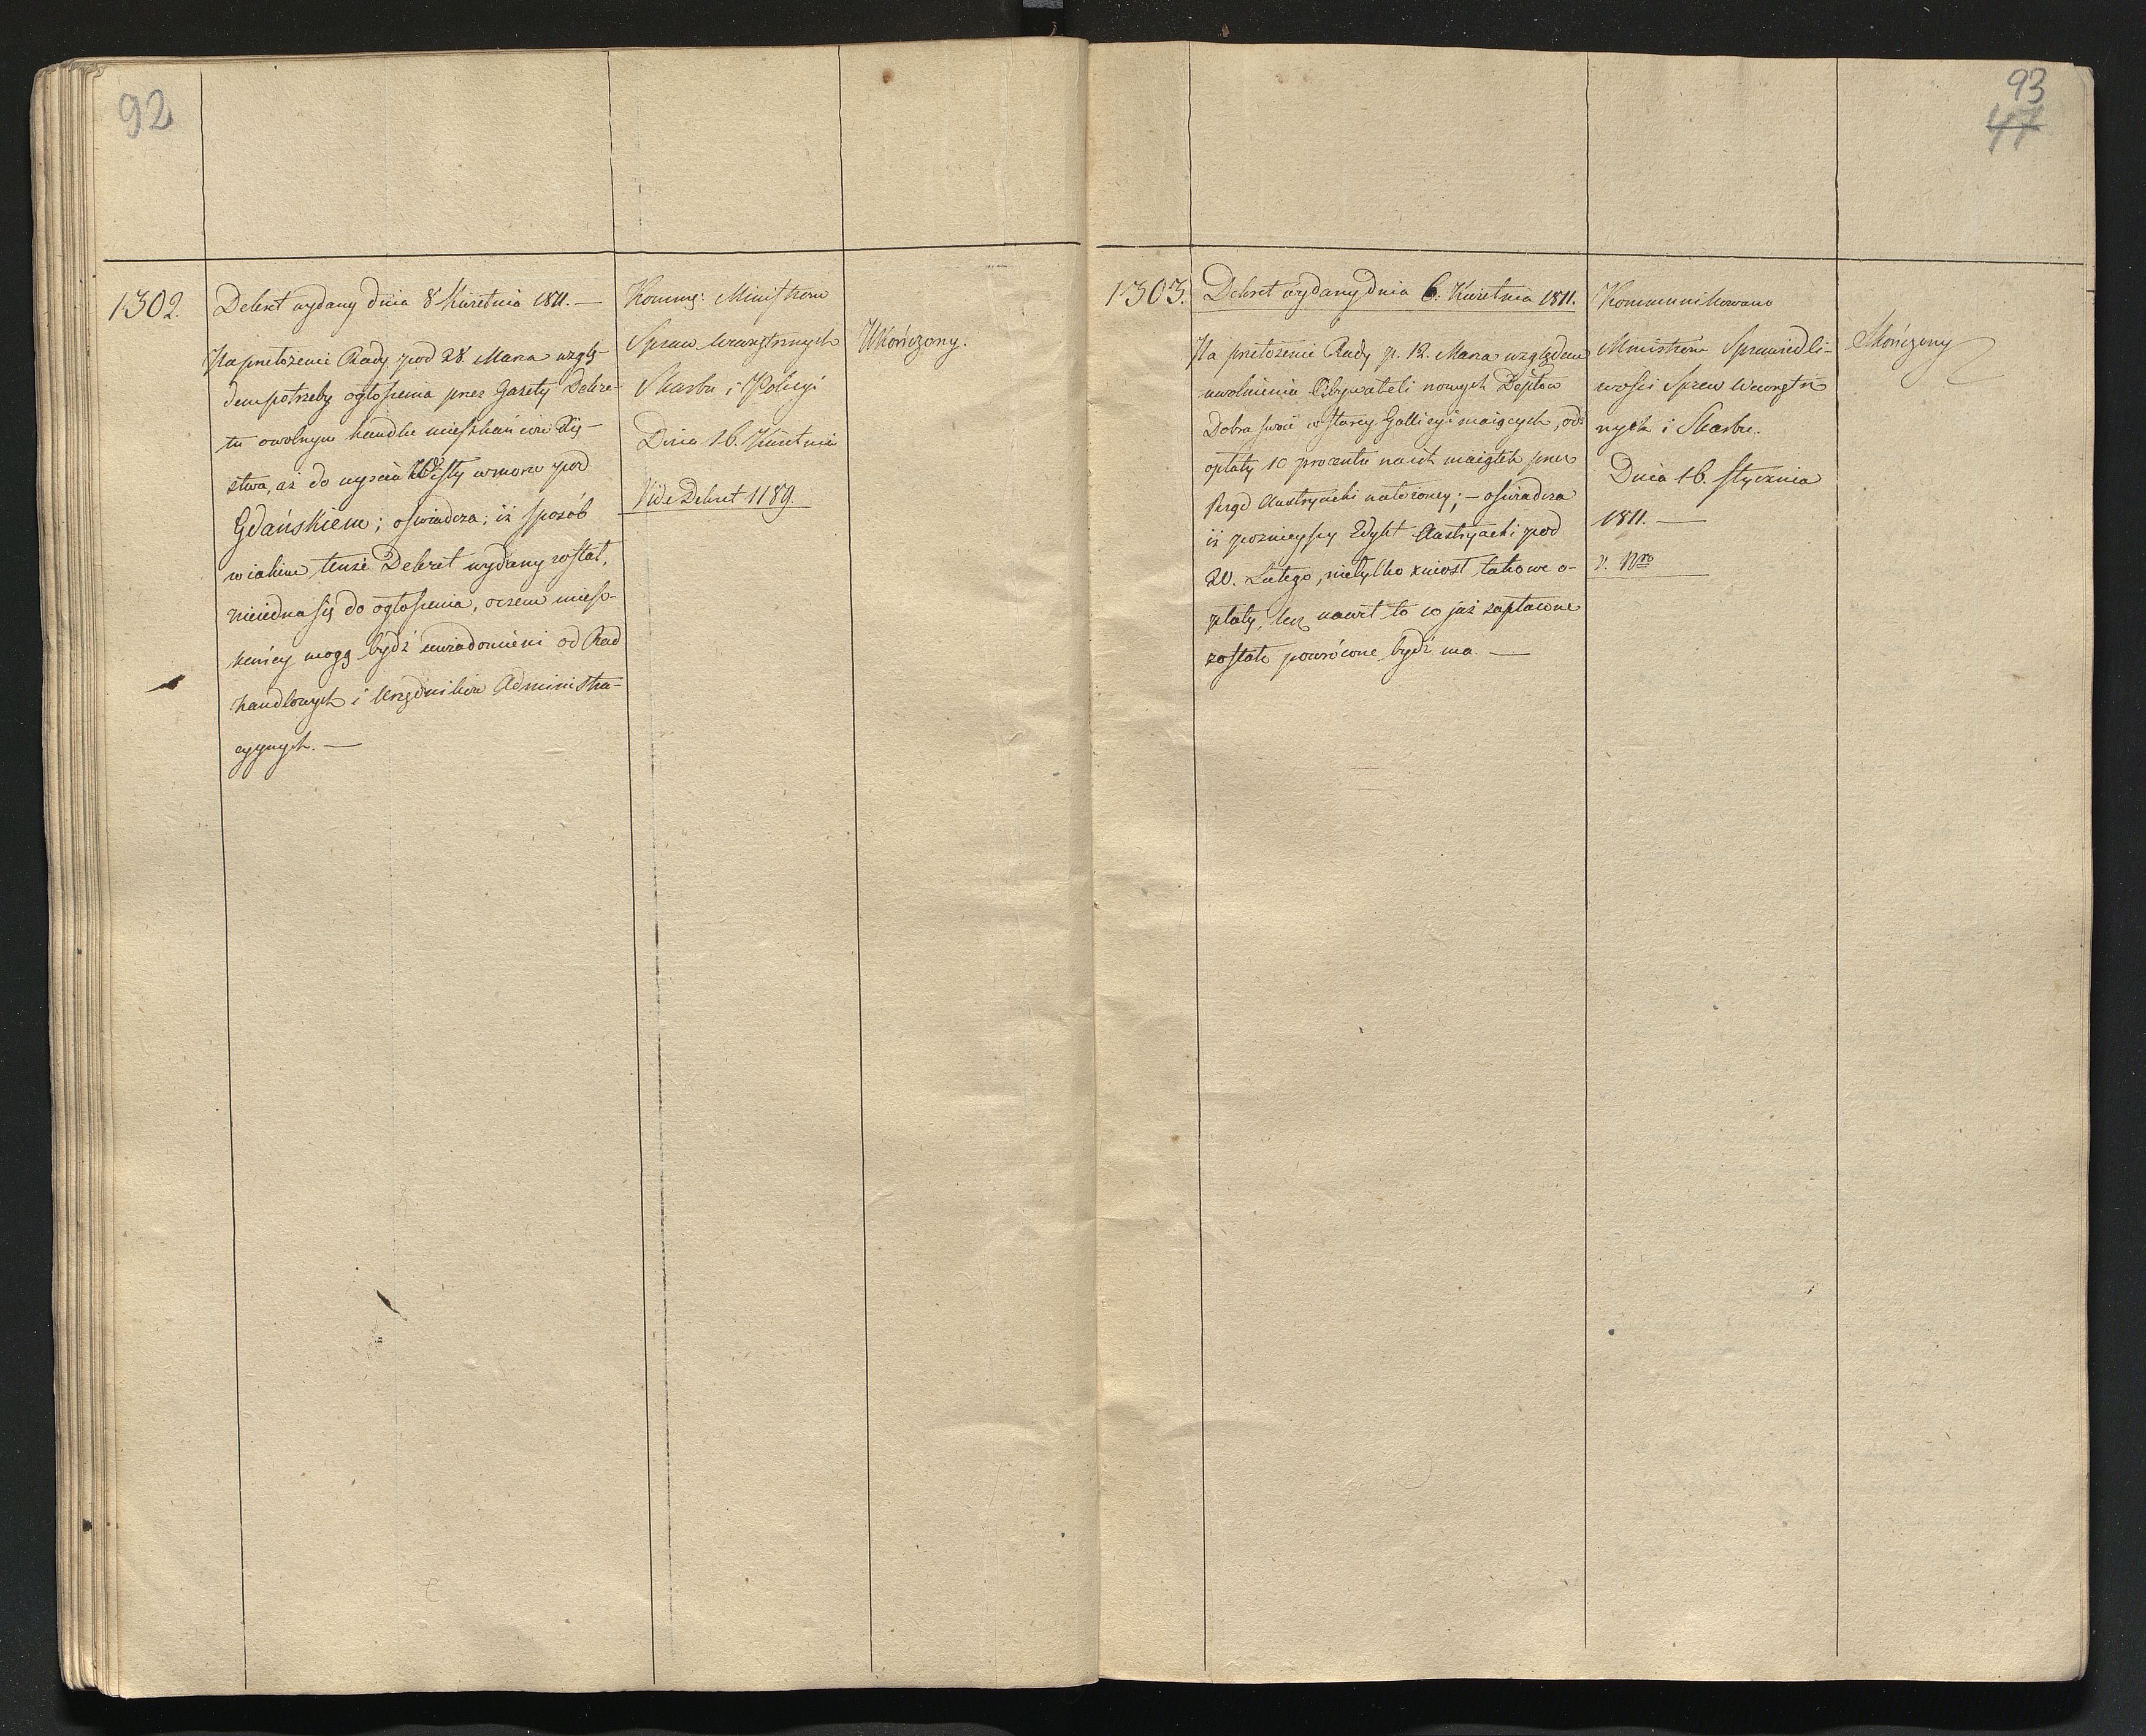 92
1302.
Dekret wydany dnia 8 Kwietnia 1811. —
Na przełożenie Rady pod 28. Marca wzglę-
dem potrzeby ogłoszenia przez Gazety Dekre-
tu o wolnym handlu mieszkańców Xię-
stwa, aż do wyjścia Wisły w morze pod
Gdańskiem; oświadcza; iż sposób
w iakim tenże Dekret wydany został,
nieiedna się do ogłoszenia, o czem miesz-
kańcy mogą bydź uwiadomieni od Rad
handlowych i Urzędników Administra-
cyynych. —
Kommg: Ministrom
Spraw Wewnętrznych
Skarbu i Policyi
Dnia 16. Kwietnia
Vide Dekret 1189.
Ukończony.
93
47
1303.
Dekret wydany dnia 6. Kwietnia 1811.
Na przełożenie Rady p. 12. Marca względem
uwolnienia Obywateli nowych Deptów
Dobra swoie w starey Gallicyi maiących, od
opłaty 10 procentu na ich maiątek przez
Rząd Austryacki nałożoney; — oświadcza
iż poznieyszy Edykt Austryacki pod
20. Lutego, nietylko zniosł takowe o-
płaty, lecz nawet to co już zapłacone
zostało powrócone bydź ma. —
Kommunikowano
Ministrom Sprawiedli-
wości Spraw Wewnętrz
nych i Skarbu.
Dnia 16. Stycznia
1811. —
v. Nro
Skończony